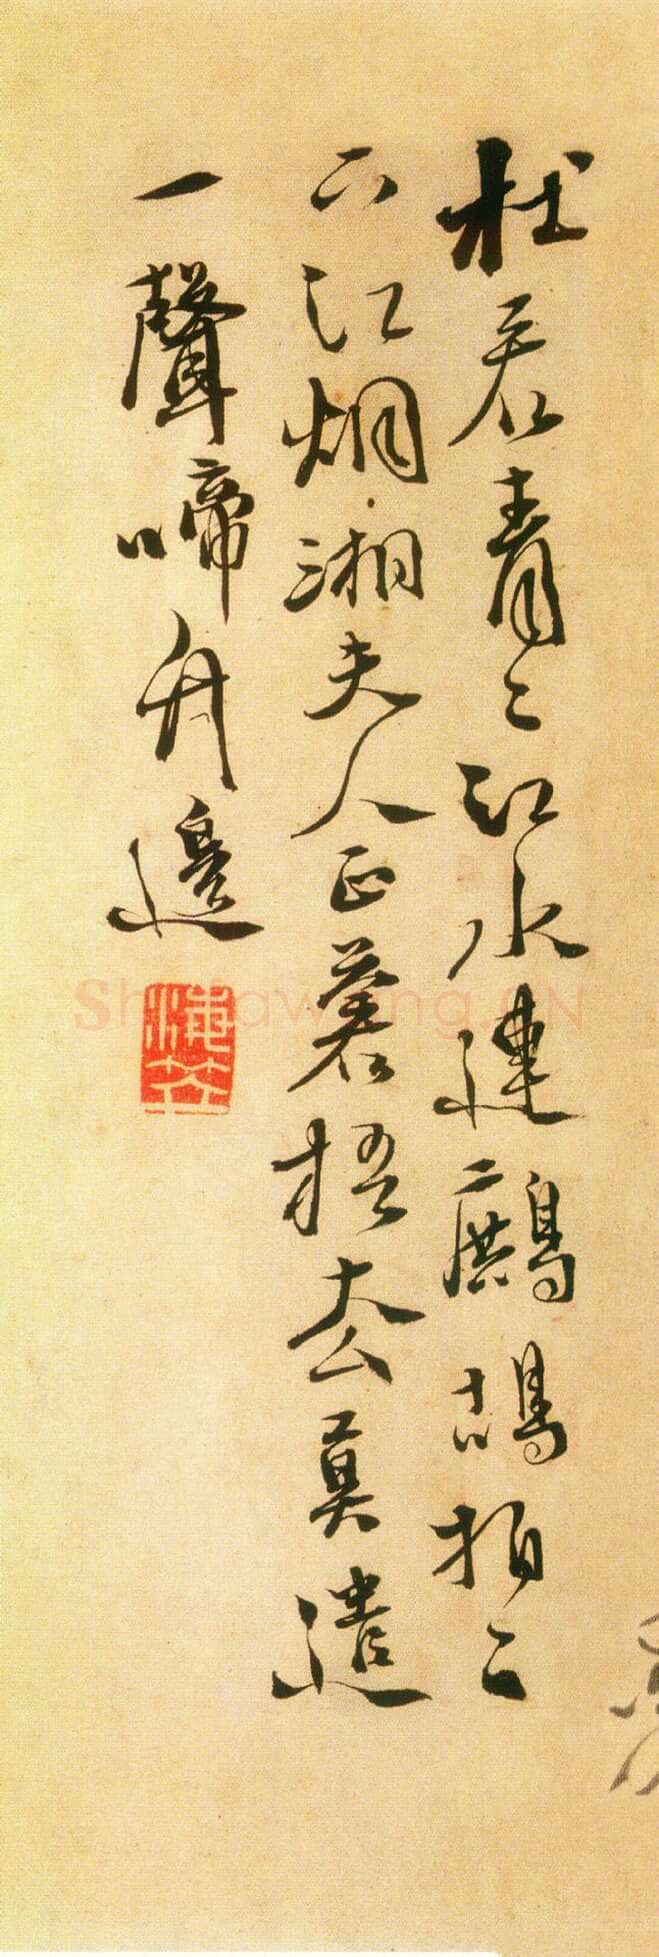 杜若青〻江水連鷓鴣拍〻
下江烟湘夫人正蒼梧去莫遣
一聲啼竹邊
Shufawang.CN